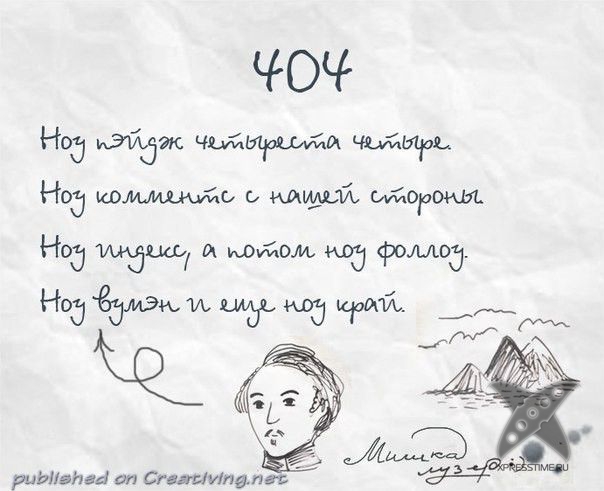 404
Ноу пэйдж четыреста четыре.
Ноу комментс с нашей стороны.
Ноу индекс, а потом ноу фоллоу.
Ноу вумэн и еще ноу край.
Мишка
лузер
XPRESSTIME.RU
published on Creativing.net